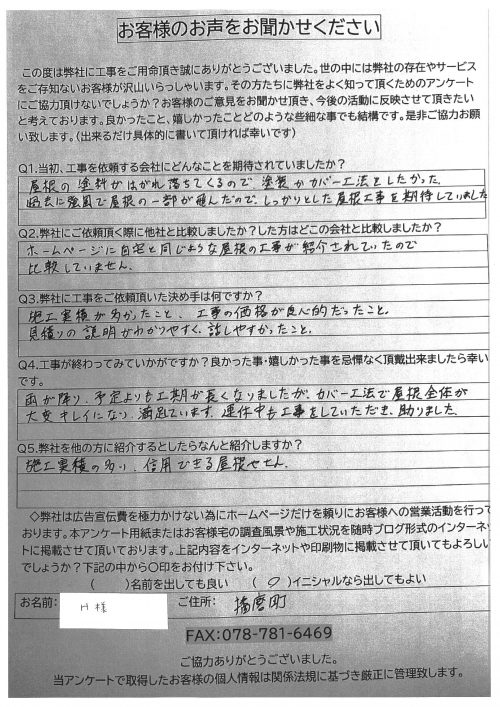 お客様のお声をお聞かせください
この度は弊社に工事をご用命頂き誠にありがとうございました。世の中には弊社の存在やサービス
をご存知ないお客様が沢山いらっしゃいます。その方たちに弊社をよく知って頂くためのアンケート
にご協力頂けないでしょうか?お客様のご意見をお聞かせ頂き、今後の活動に反映させて頂きたい
と考えております。良かったこと、嬉しかったことどのような些細な事でも結構です。是非ご協力お願
い致します。(出来るだけ具体的に書いて頂ければ幸いです)
Q1.当初、工事を依頼する会社にどんなことを期待されていましたか?
屋根の塗料がはがれ落ちてくるので、塗装かカバー工法をしたかった。
過去に強風で屋根の一部が飛んだので、しっかりとした屋根工事を期待していました
Q2.弊社にご依頼頂く際に他社と比較しましたか?した方はどこの会社と比較しましたか?
ホームページに自宅と同じような屋根の工事が紹介されていたので
比較していません。
Q3.弊社に工事をご依頼頂いた決め手は何ですか?
施工実績が多かったこと、工事の価格が良心的だったこと。
見積りの説明がわかりやすく、話しやすかったこと。
Q4.工事が終わってみていかがですか?良かった事・嬉しかった事を忌憚なく頂戴出来ましたら幸い
です。
雨が降り、予定よりも工期が長くなりましたが、カバー工法で屋根全体が
大変キレイになり、満足しています。連休中も工事をしていただき、助りました。
Q5.弊社を他の方に紹介するとしたらなんと紹介しますか?
施工実積の多い、信用できる屋根やさん。
◇弊社は広告宣伝費を極力かけない為にホームページだけを頼りにお客様への営業活動を行って
おります。本アンケート用紙またはお客様宅の調査風景や施工状況を随時ブログ形式のインターネッ
トに掲載させて頂いております。上記内容をインターネットや印刷物に掲載させて頂いてもよろしい
でしょうか?下記の中から〇印をお付け下さい。
( )名前を出しても良い (〇)イニシャルなら出してもよい
お名前: H様 ご住所: 播磨町
FAX:078-781-6469
ご協力ありがとうございました。
当アンケートで取得したお客様の個人情報は関係法規に基づき厳正に管理致します。